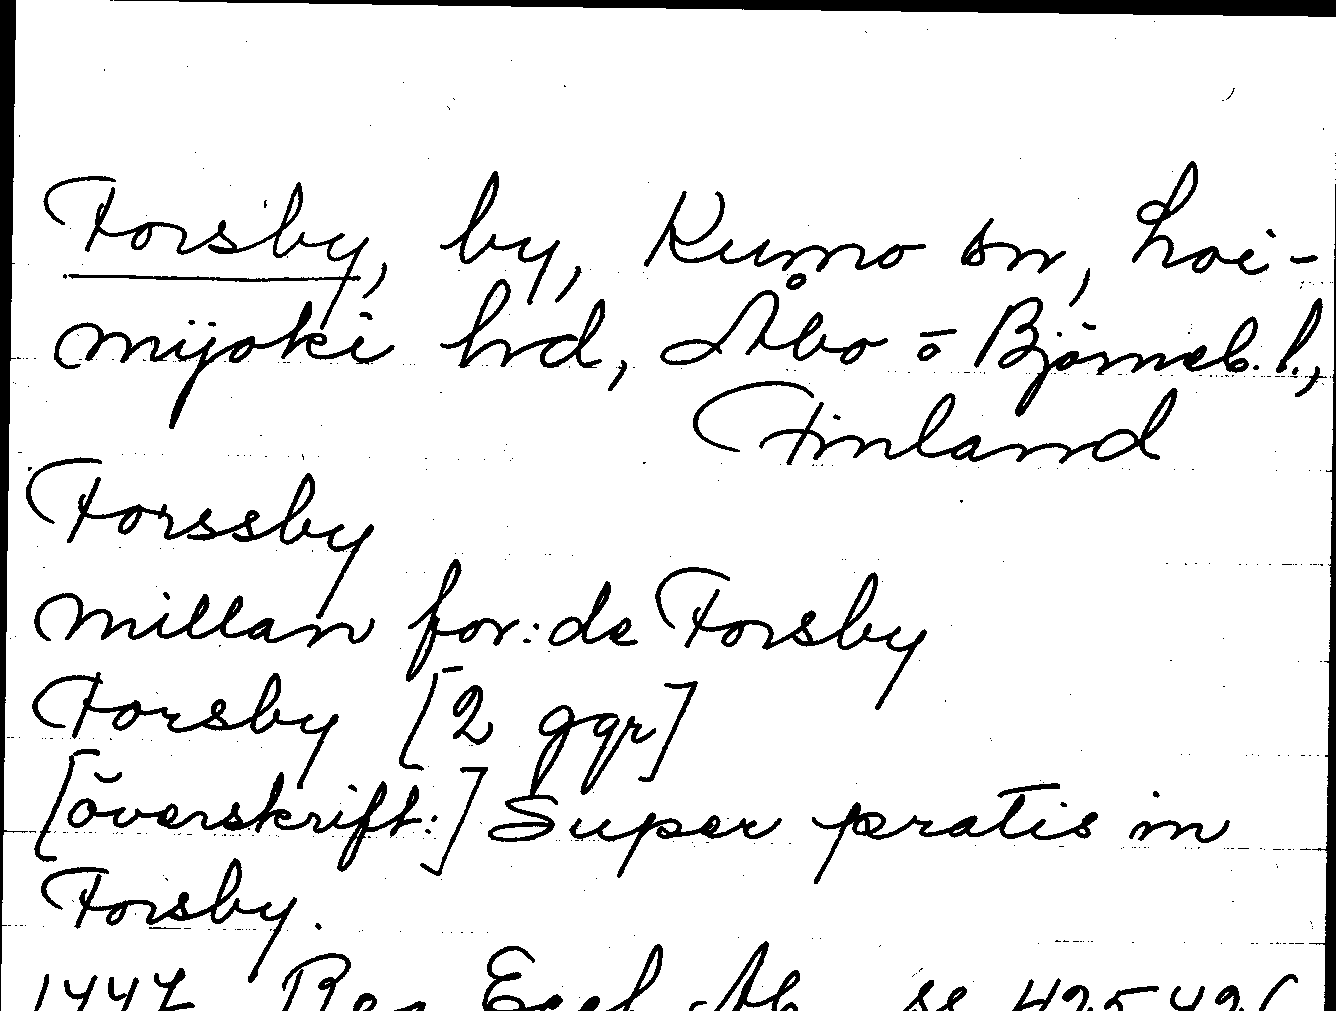 Forsby, by, Kumo sn, Loi-
mijoki hrd, Åbo o Björneb. l.,
Finland
Forssby
millan for:de Forsby
Forsby [2 ggr]
[överskrift:] Super pratis in
Forsby.
1447 Reg Eccl. Ab ss 425 426